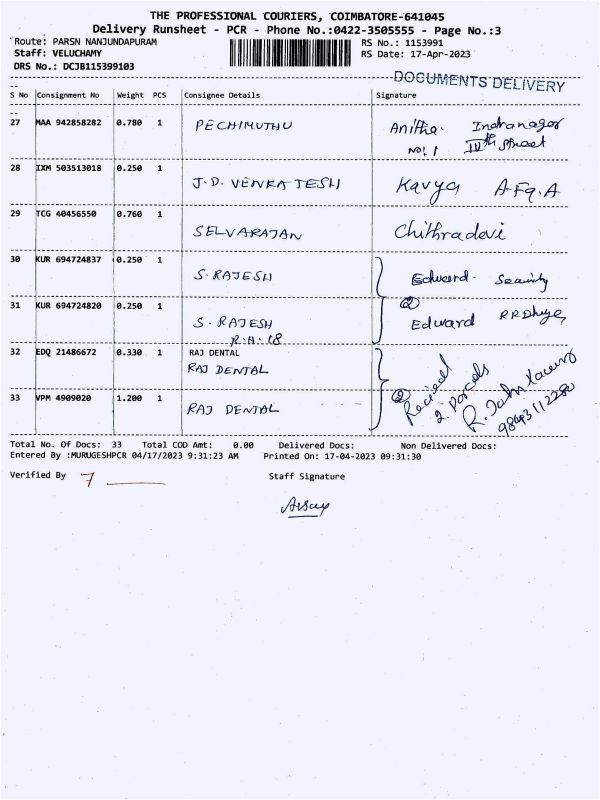 THE PROFESSIONAL COURIERS, COIMBATORE-641045
Delivery Runsheet - PCR - Phone No.:0422-3505555 - Page No.:3
Route: PARSN NANJUNDAPURAM RS No.: 1153991
Staff: VELUCHAMY RS Date: 17-Apr-2023
DRS No.: DCJB115399103
DOCUMENTS DELIVERY
S No Consignment No Weight PCS Consignee Details Signature
27 MAA 942858282 0.780 1 PECHIMUTHU Anitha. Indranagar
No: 1 IVth Street
28 IXM 503513018 0.250 1
J.D. VENKATESH Kavya
29 TCG 40456550 0.760 1
SELVARAJAN Chithradevi
30 KUR 694724837 0.250 1
S. RAJESH Edward Security
31 KUR 694724820 0.250 1 2
S. RAJESH Edward
R.A. 18
32 EDQ 21486672 0.330 1 RAJ DENTAL
RAJ DENTAL
33 VPM 4909020 1.200 1 RAJ DENTAL
2 Recieved
2. Parcels
R. John
Total No. Of Docs: 33 Total COD Amt: 0.00 Delivered Docs: Non Delivered Docs:
Entered By :MURUGESHPCR 04/17/2023 9:31:23 AM Printed On: 17-04-2023 09:31:30
Verified By 7 Staff Signature